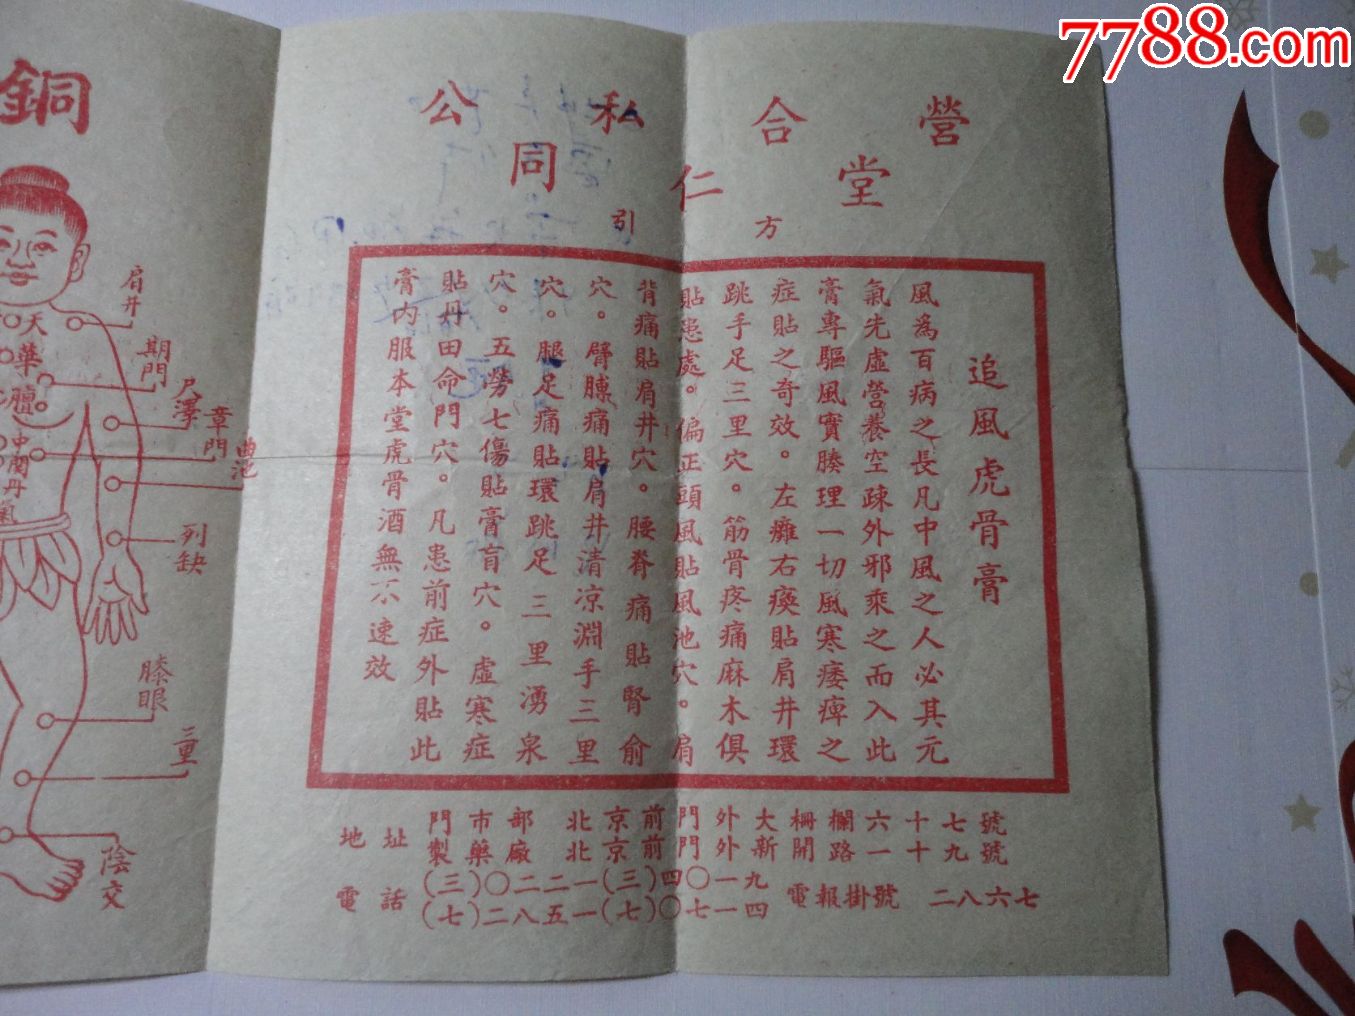 7788.com
公私合營
同仁堂
引方
追風虎骨膏
風為百病之長凡中風之人必其元
氣先虛營養空疎外邪乘之而入此
膏專驅風實腠理一切風寒痿痺之
症貼之奇效。左癱右瘓貼肩井環
跳手足三里穴。筋骨疼痛麻木俱
貼患處。偏正頭風貼風池穴。肩
背痛貼肩井穴。腰脊痛貼腎俞
穴。臂膊痛貼肩井清凉淵手三里
穴。腿足痛貼環跳足三里湧泉
穴。五勞七傷貼膏肓穴。虛寒症
貼丹田命門穴。凡患前症外貼此
膏內服本堂虎骨酒無不速效
地址
門市部 北京前門外大柵欄六十七號
製藥廠 北京前門外新開路一十九號
電話
(三)〇二二一(三)四〇一九
(七)二八五一(七)〇七一四
電報掛號 二八六七
銅
肩井
期門
尺澤
章門
曲池
列缺
膝眼
三重
陰交
天
華
膻
中
關
丹
氣